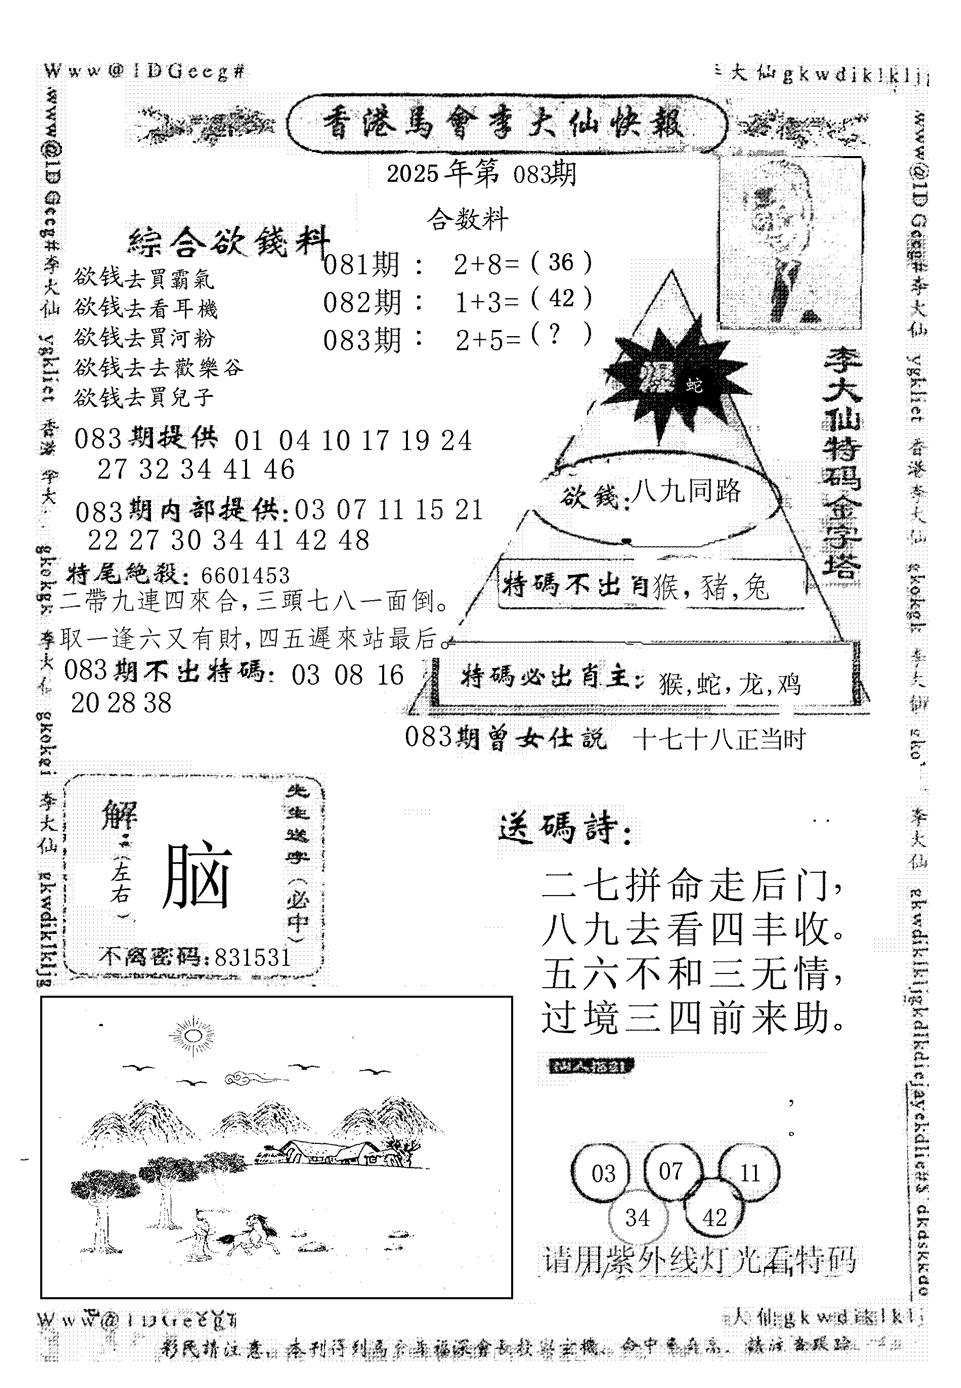 Www@1DGeeg#
李大仙gkwdiklklj
香港馬會李大仙快報
2025年第 083期
合数料
綜合欲錢料
欲钱去買霸氣
欲钱去看耳機
欲钱去買河粉
欲钱去去歡樂谷
欲钱去買兒子
081期 : 2+8=(36)
082期 : 1+3=(42)
083期 : 2+5=(?)
083期提供 01 04 10 17 19 24
27 32 34 41 46
083期内部提供:03 07 11 15 21
22 27 30 34 41 42 48
特尾絶殺: 6601453
二帶九連四來合,三頭七八一面倒。
取一逢六又有財,四五遲來站最后。
083期不出特碼: 03 08 16
20 28 38
爆 蛇
欲錢:八九同路
特碼不出肖猴,豬,兔
特碼必出肖主:猴,蛇,龙,鸡
李大仙特码金字塔
083期曾女仕説 十七十八正当时
解:(左右)
脑
先生送字(必中)
不离密码:831531
送碼詩:
二七拼命走后门,
八九去看四丰收。
五六不和三无情,
过境三四前来助。
,
。
03 07 11
34 42
请用紫外线灯光看特码
www@1DGeeg#李大仙 ygkliet 香港李大 gkokgk 李大仙 gkokei 李大仙 gkwdiklkljg
www@1DGeeg#李大仙 ygkliet 香港李大仙 gkokgk 李大仙 gko
李大仙 gkwdiklkljgkdlkdiejayekdlie#$ dkdskkdo
Www@1DGeeg
大仙gkwdiklklj
彩民請注意。本刊得到馬會